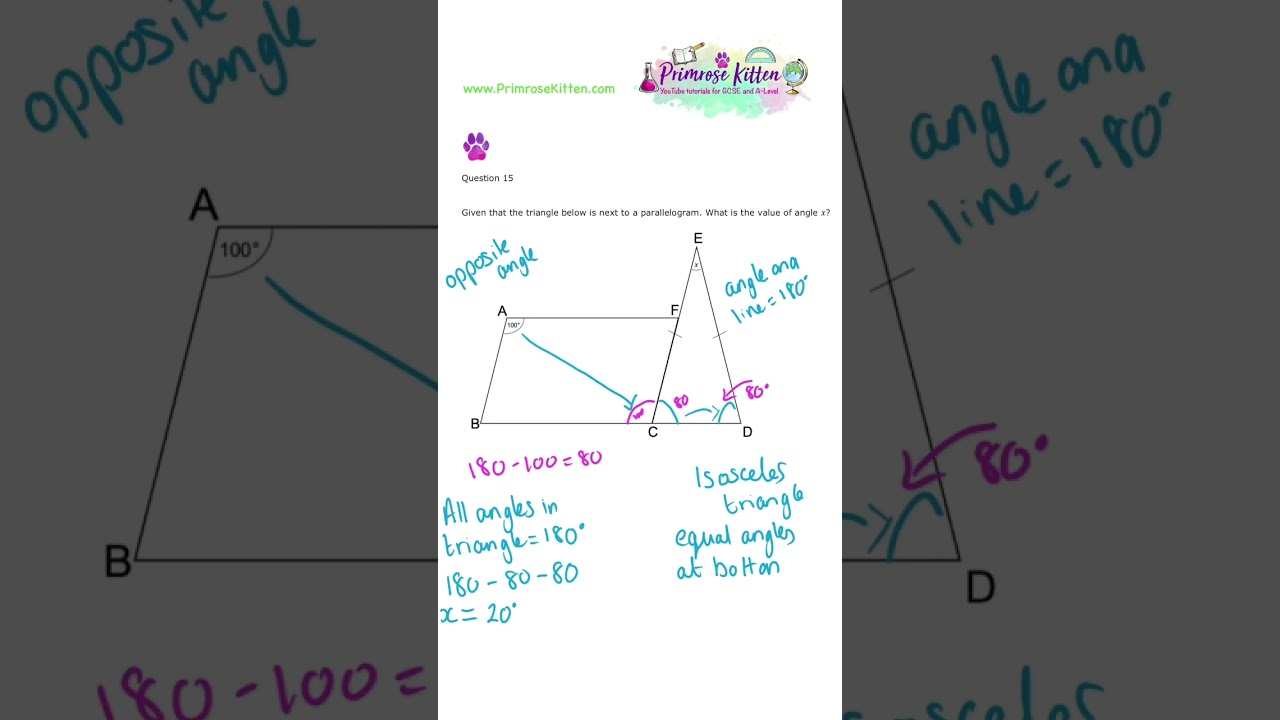 opposite
angle
A
100°
B
180-100=
www.PrimroseKitten.com
Primrose Kitten
YouTube tutorials for GCSE and A-Level
Question 15
Given that the triangle below is next to a parallelogram. What is the value of angle x?
opposite
angle
E
x
angle on a
line = 180°
A
F
100°
100
80
80°
B
C
D
180-100=80
Isosceles
triangle
equal angles
at bottom
All angles in
triangle=180°
180-80-80
x=20°
angle on a
line=180°
80°
D